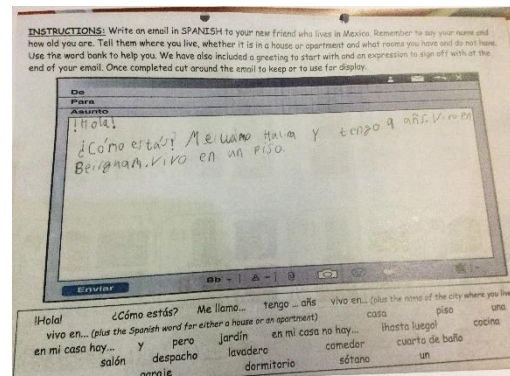 INSTRUCTIONS: Write an email in SPANISH to your new friend who lives in Mexico. Remember to say your name and
how old you are. Tell them where you live, whether it is in a house or apartment and what rooms you have and do not have.
Use the word bank to help you. We have also included a greeting to start with and an expression to sign off with at the
end of your email. Once completed cut around the email to keep or to use for display.
De
Para
Asunto
¡Hola!
¿Cómo estás? Me llamo y tengo 9 añs. Vivo en
vivo en un piso.
Enviar
!Hola! ¿Cómo estás? Me llamo... tengo ... añs vivo en... (plus the name of the city where you live
vivo en... (plus the Spanish word for either a house or an apartment) casa piso una
en mi casa hay... y pero jardín en mi casa no hay... !hasta luego! cocina
salón despacho lavadero comedor cuarto de baño
garaje dormitorio sótano un